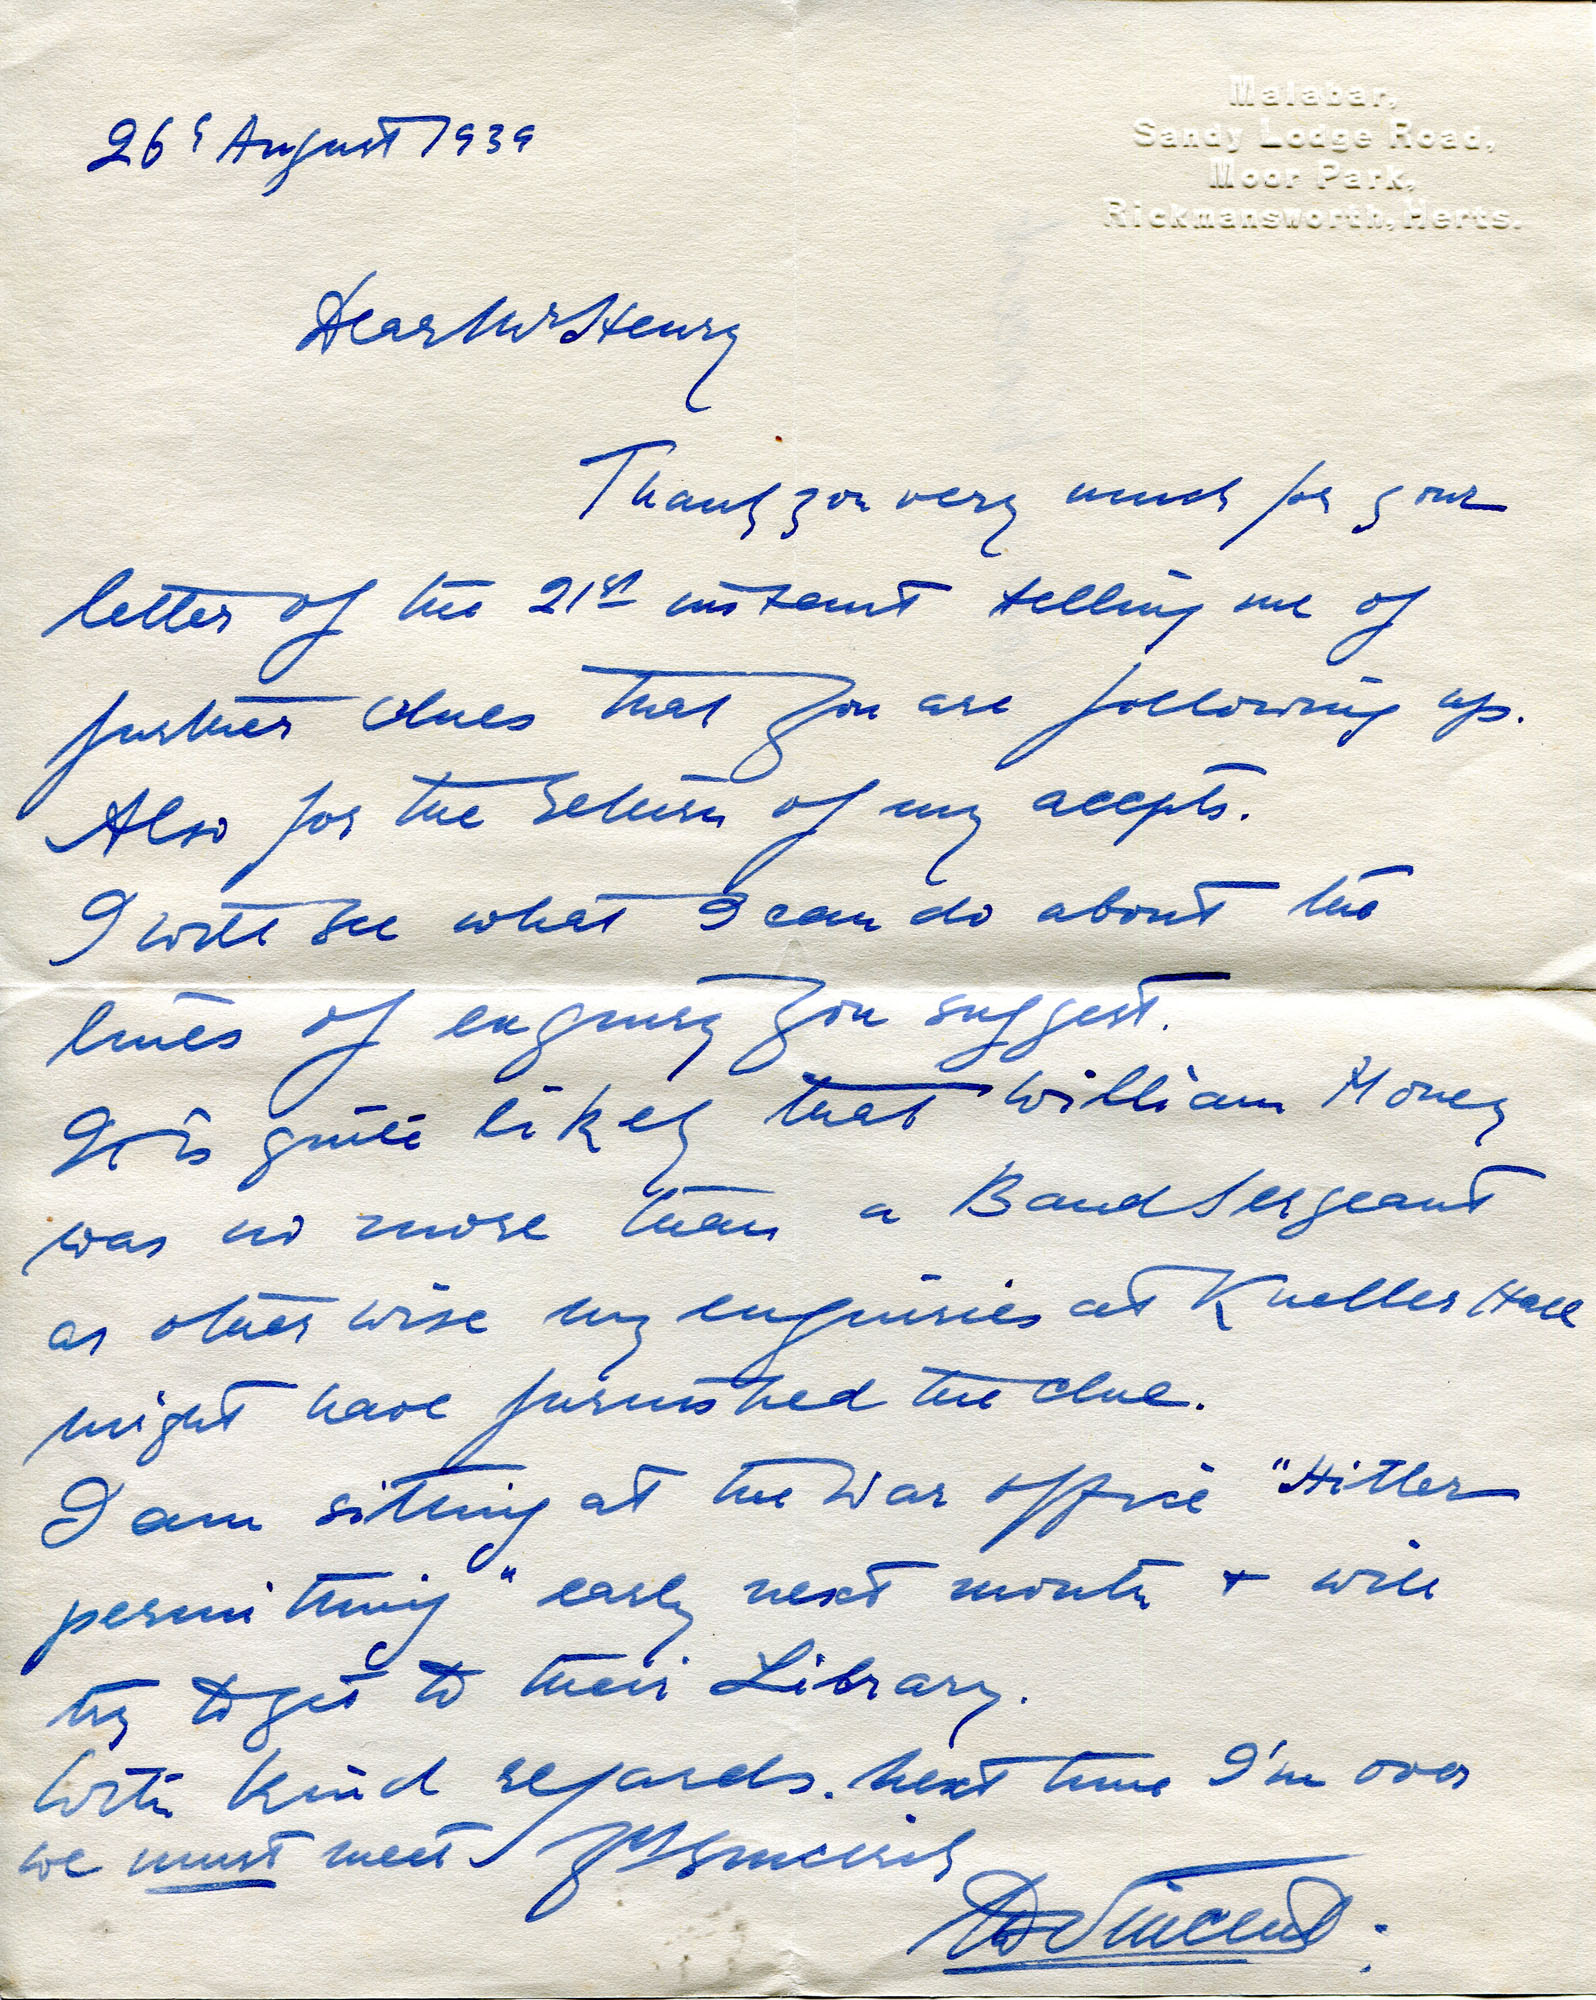 Malabar,
Sandy Lodge Road,
Moor Park,
Rickmansworth, Herts.
26th August 1939
Dear Mr Henry
Thank you very much for your
letter of the 21st instant telling me of
further clues that you are following up.
Also for the return of my accpts.
I will see what I can do about the
lines of enquiry you suggest.
It is quite likely that William Money
was no more than a Band Sergeant
as otherwise my enquiries at Kneller Hall
might have furnished the clue.
I am sitting at the War Office "Hitler
permitting" early next month & will
try to get to their Library.
With kind regards. Next time I'm over
we must meet Yrs sincerely
Vincent